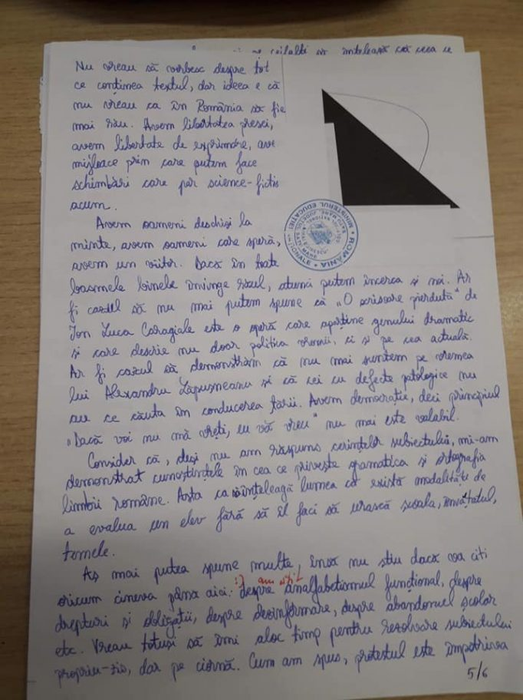 ceilalți să înțeleagă că ceea ce
Nu vreau să vorbesc despre tot
ce conținea textul, dar ideea e că
nu vreau ca în România să fie
mai rău. Avem libertatea presei,
avem libertate de exprimare, avem
mijloace prin care putem face
schimbări care par science-fictio
acum.
Avem oameni deschiși la
minte, avem oameni care speră,
avem un viitor. Dacă în toate
basmele binele învinge răul, atunci putem încerca și noi. Ar
fi cazul să nu mai putem spune că „O scrisoare pierdută" de
Ion Luca Caragiale este o operă care aparține genului dramatic
și care descrie nu doar politica vremii, ci și pe cea actuală.
Ar fi cazul să demonstrăm că nu mai suntem pe vremea
lui Alexandru Lăpușneanu și că cei cu defecte patologice nu
au ce căuta în conducerea țării. Avem democrație, deci principiul
„Dacă voi nu mă vreți, eu vă vreu" nu mai este valabil.
Consider că, deși nu am răspuns cerințelor subiectului, mi-am
demonstrat cunoștințele în cea ce privește gramatica și ortografia
limbii române. Asta ca să înțeleagă lumea că există modalități de
a evalua un elev fără să îl faci să urască școala, învățatul,
temele.
Aș mai putea spune multe, însă nu știu dacă va citi
oricum cineva până aici: despre analfabetismul funcțional, despre
:) am citit
drepturi și obligații, despre dezinformare, despre abandonul școlar
etc. Vreau totuși să îmi aloc timp pentru rezolvare subiectului
propriu-zis, dar pe ciornă. Cum am spus, protestul este împotriva
5/6
ROMANIA
MINISTERUL EDUCAȚIEI